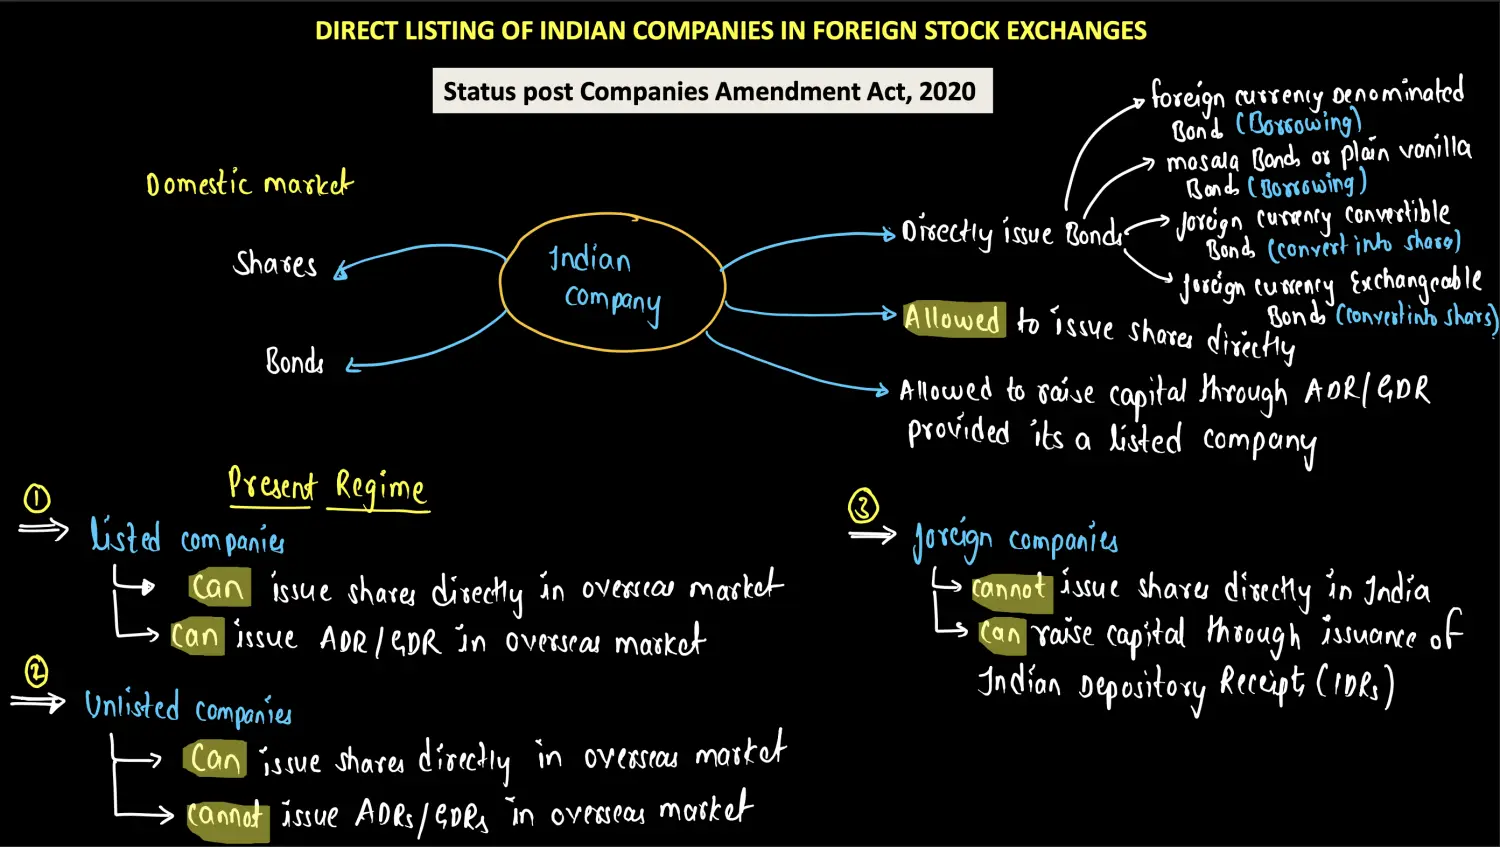 DIRECT LISTING OF INDIAN COMPANIES IN FOREIGN STOCK EXCHANGES
Status post Companies Amendment Act, 2020
Domestic market
Shares
Bonds
Indian
company
Directly issue Bonds
foreign currency Denominated
Bond (Borrowing)
masala Bonds or plain vanilla
Bonds (Borrowing)
foreign currency convertible
Bonds (convert into share)
foreign currency Exchangeable
Bonds (convert into shars)
Allowed to issue shares directly
Allowed to raise capital through ADR/GDR
provided its a listed company
Present Regime
1
Listed companies
can issue shares directly in overseas market
can issue ADR/GDR in overseas market
2
Unlisted companies
can issue shares directly in overseas market
cannot issue ADRs/GDRs in overseas market
3
foreign companies
cannot issue shares directly in India
can raise capital through issuance of
Indian Depository Receipts (IDRs)